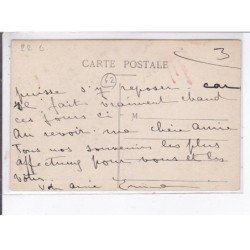 22 6
3
CARTE POSTALE
62
puisse s'y reposer car
il fait vraiment chaud
ces jours ci M
Au revoir ma chère amie
Tous nos souvenirs les plus
affectueux pour vous et les
vôtres
Votre amie